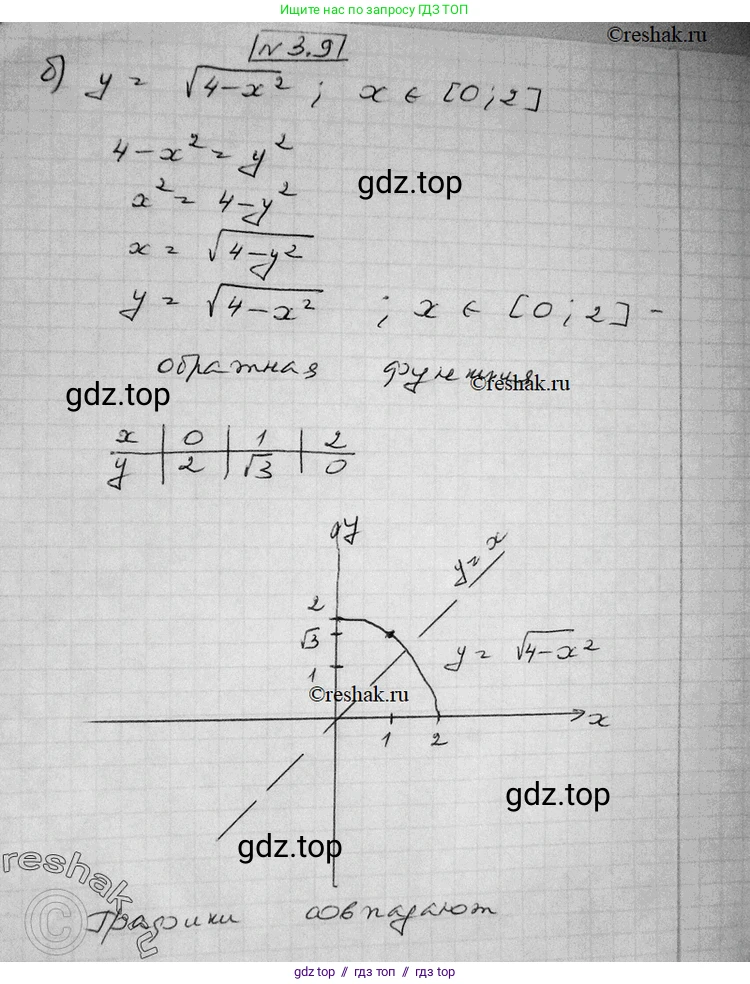 Ищите нас по запросу ГДЗ ТОП
©reshak.ru
N 3.9
б) y = √(4-x²) ; x ∈ [0;2]
4-x² = y²
x² = 4-y²
gdz.top
x = √(4-y²)
y = √(4-x²) ; x ∈ [0;2] -
обратная функция
©reshak.ru
gdz.top
x | 0 | 1 | 2
y | 2 | √3 | 0
y
y = x
2
√3
y = √(4-x²)
1
©reshak.ru
x
1 2
gdz.top
gdz.top
reshak.ru
©
Графики совпадают
gdz.top // гдз топ // gdz top